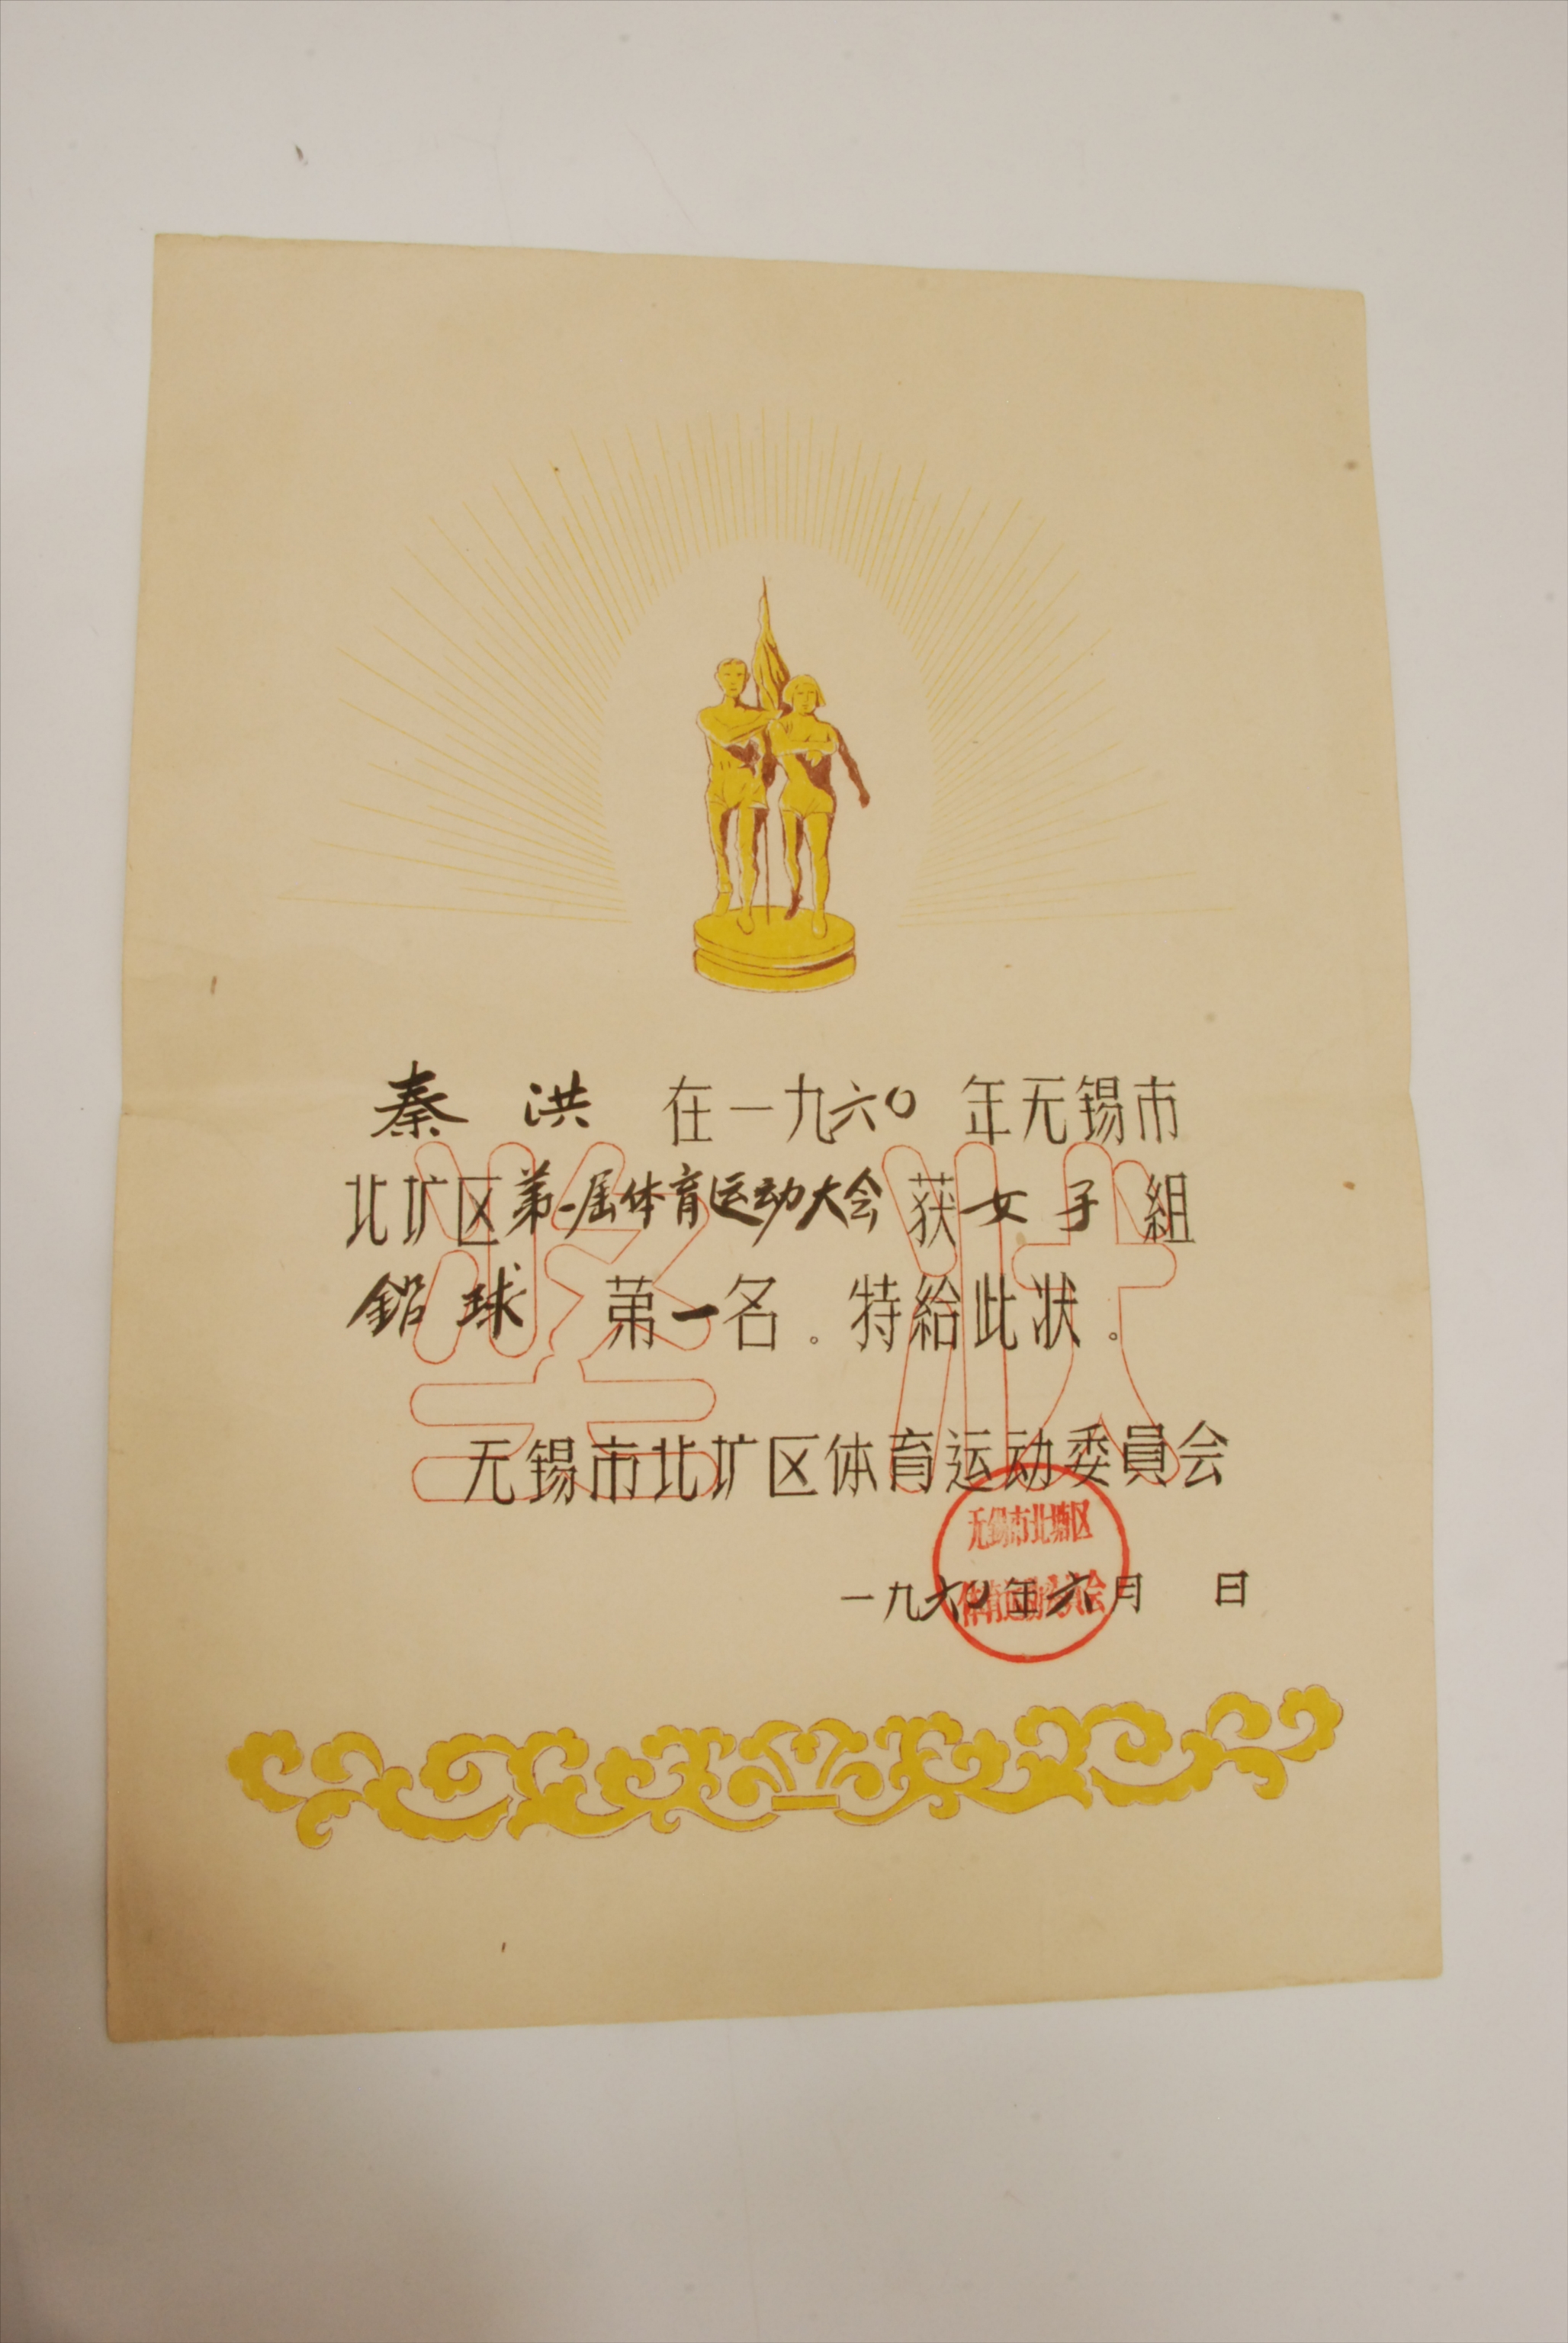 秦洪 在一九六〇 年无锡市
北圹区第一届体育运动大会 获女子組
鉛球 第一名。特給此状。
奖状
无锡市北圹区体育运动委員会
无锡市北塘区
体育运动委员会
一九六〇年六月 日